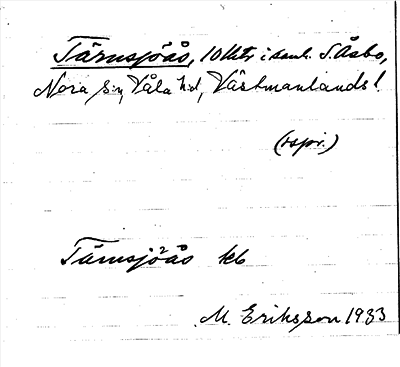 Tärnsjöås, 10 kltr i samh. S. Åsbo,
Nora s:n, Våla hd, Västmanlands l.
(rspr.)
Tärnsjöås
M. Eriksson 1933